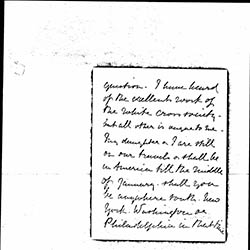 question. I have heard
of the excellent work of
the White Cross Society.
but all other is unique to me.
My daughter & I are still
on our travels & shall be
in America till the middle
of January. shall you
be anywhere south. New
York. Washington or
Philadelphia in